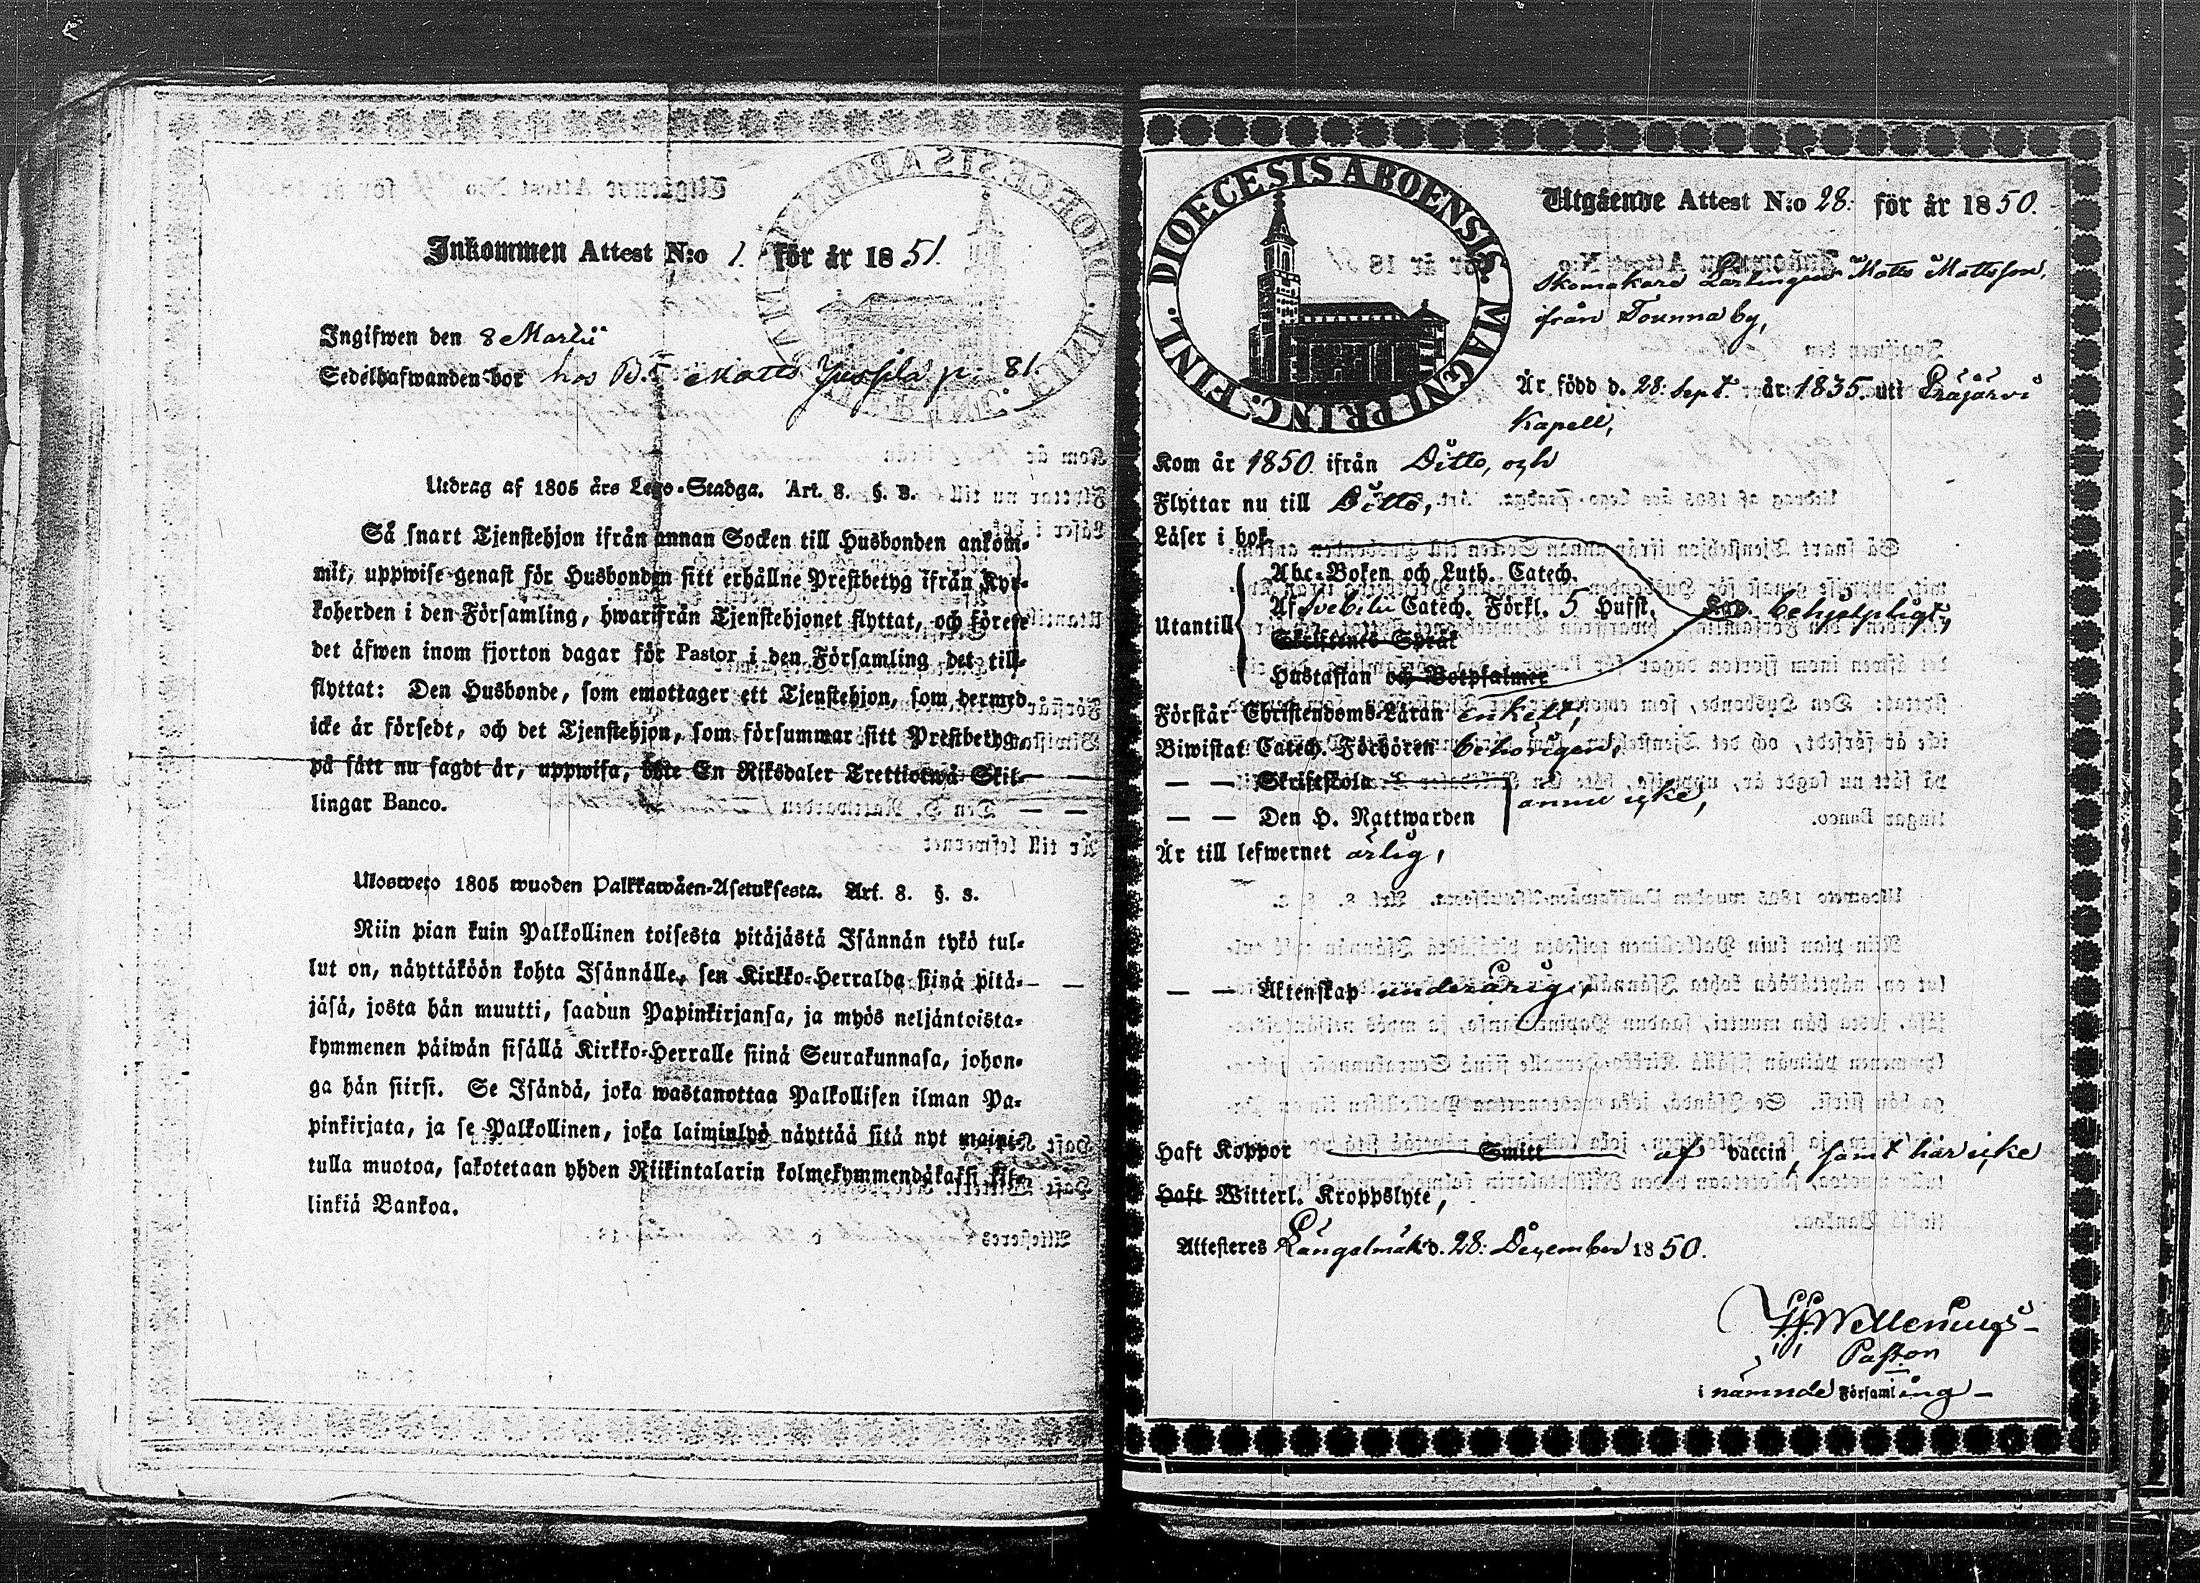 Inkommen Attest N:o 1. för år 1851.
Ingifwen den 8 Martii
Sedelhafwanden bor hos B. Matts Jussila p. 81.
Utdrag af 1805 års Lego-Stadga. Art. 8. §. 3.
Så snart Tjenstehjon ifrån annan Socken till Husbonden ankom-
mit, uppwise genast för Husbonden sitt erhållne Prestbetyg ifrån Kyr-
koherden i den Församling, hwarifrån Tjenstehjonet flyttat, och förete
det äfwen inom fjorton dagar för Pastor i den Församling det till-
flyttat: Den Husbonde, som emottager ett Tjenstehjon, som dermed
icke är försedt, och det Tjenstehjon, som försummar sitt Prestbetyg,
på sätt nu sagdt är, uppwisa, böte En Riksdaler Trettiotwå Skil-
lingar Banco.
Ulosweto 1805 wuoden Palkkawäen-Asetuksesta. Art. 8. §. 3.
Niin pian kuin Palkollinen toisesta pitäjästä Isännän tykö tul-
lut on, näyttäköön kohta Isännälle, sen Kirkko-Herralda siinä pitä-
jäsä, josta hän muutti, saadun Papinkirjansa, ja myös neljäntoista-
kymmenen päiwän sisällä Kirkko-Herralle siinä Seurakunnasa, johon-
ga hän siirsi. Se Isändä, joka wastanottaa Palkollisen ilman Pa-
pinkirjata, ja se Palkollinen, joka laiminlyö näyttää sitä nyt maini-
tulla muotoa, sakotetaan yhden Riikintalarin kolmekymmendäkaksi kil-
linkiä Bankoa.
DIOECESIS ABOENSIS. MAGNI PRINC. FINL.
Utgående Attest N:o 28. för år 1850.
Skomakare Lärlingen Matts Mattsson,
ifrån Tounna by,
Är född d. 28. Sept. år 1835. uti Eräjärvi
Kapell,
Kom år 1850 ifrån Ditto, och
Flyttar nu till Ditto,
Läser i bok
Abc-Boken och Luth. Catech.
Utantill Af Svebilii Catech. Förkl. 5 Hufst. behjelpligt,
Skriftenes Språk
Hustaflan och Botpsalmer
Förstår Christendoms-Läran enkelt,
Biwistat Catech. Förhören behörigen,
— — Skriftskola
— — Den H. Nattwarden annu icke,
Är till lefwernet ärlig,
— — Äktenskap underårig,
Haft Koppor Smitt af vaccin, samt har icke
Haft Witterl. Kroppslyte,
Attesteres Längelmäki d. 28. December 1850.
Pastor
i nämnde Församling